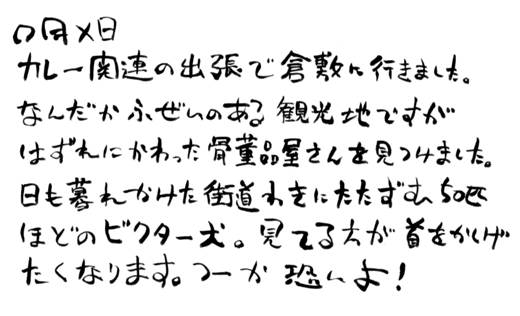 〇月×日
カレー関連の出張で倉敷に行きました。
なんだかふぜいのある観光地ですが
はずれにかわった骨董品屋さんを見つけました。
日も暮れかけた街道わきにたたずむ50匹
ほどのビクター犬。見てる方が首をかしげ
たくなります。つーか恐いよ!